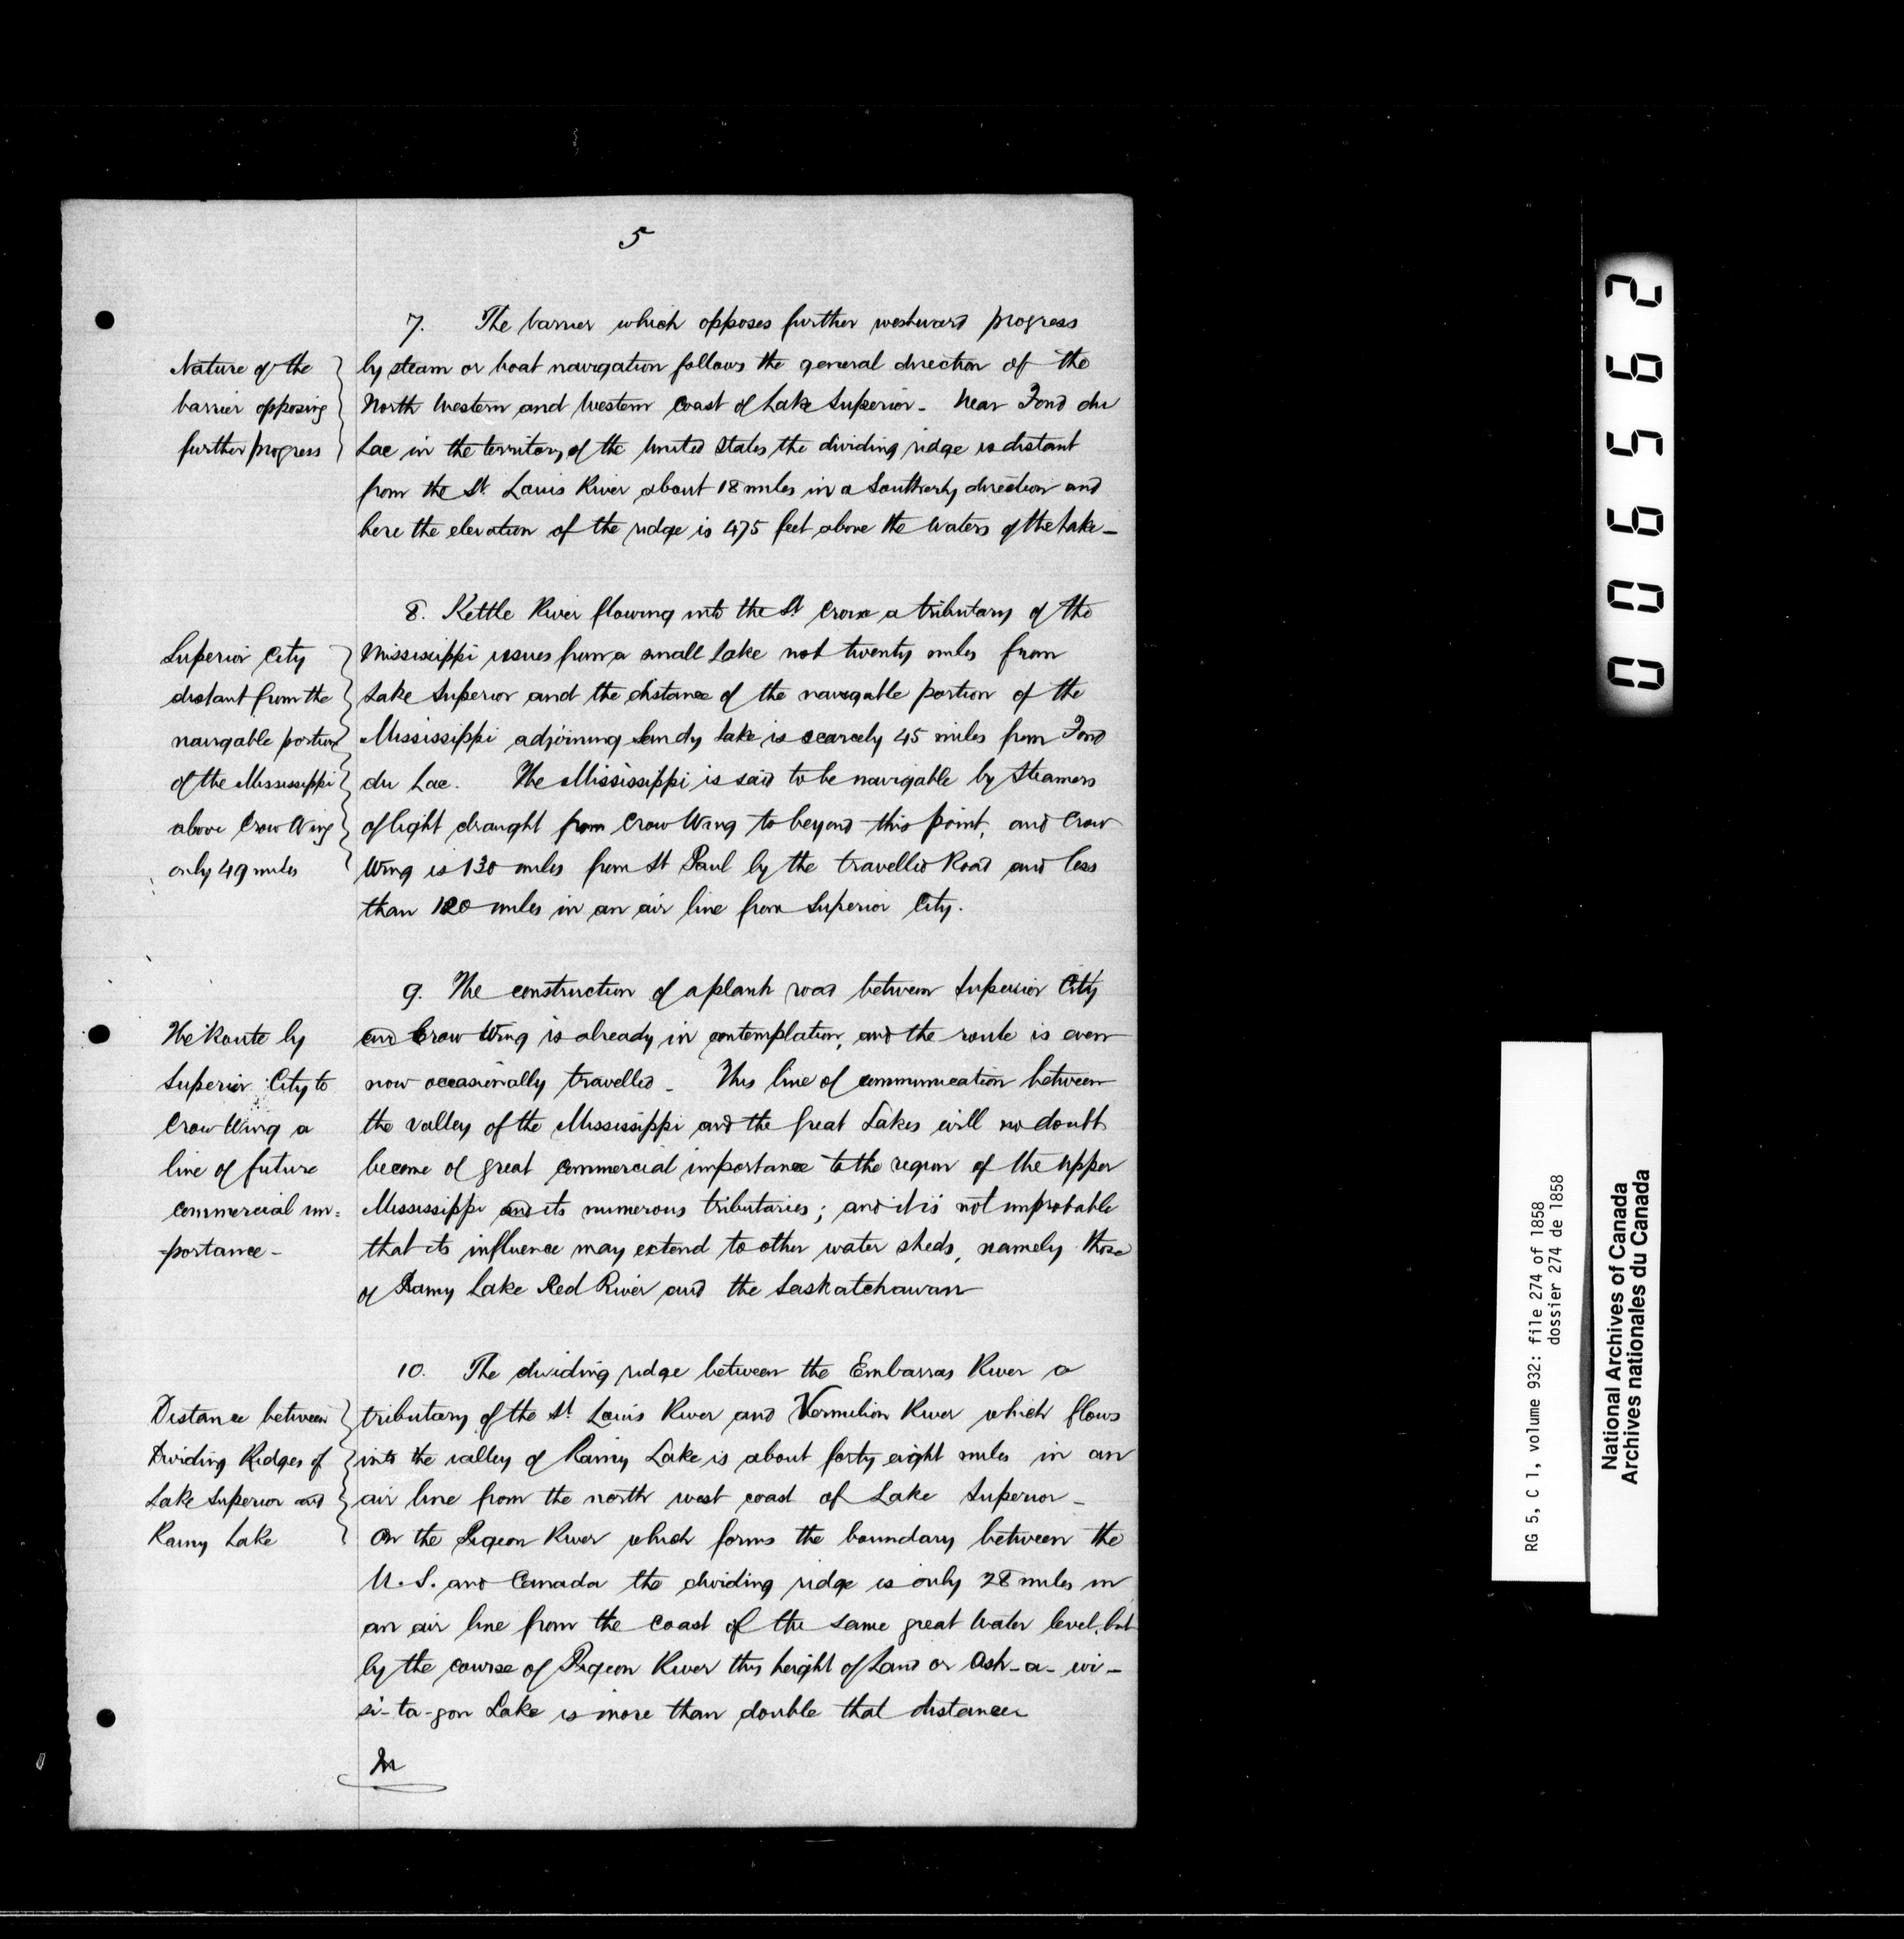 5
7. The barrier which opposes further westward progress
Nature of the
barrier opposing
further progress
by steam or boat navigation follows the general direction of the
North Western and Western Coast of Lake Superior - Near Fond du
Lac in the territory of the United States, the dividing ridge is distant
from the St. Louis River about 18 miles in a Southerly direction and
here the elevation of the ridge is 475 feet above the Waters of the Lake -
8. Kettle River flowing into the St Croix a tributary of the
Superior City
distant from the
navigable portion
of the Mississippi
above Crow Wing
only 49 miles
Mississippi issues from a small Lake not twenty miles from
Lake Superior and the distance of the navigable portion of the
Mississippi adjoining Sandy Lake is scarcely 45 miles from Fond
du Lac. The Mississippi is said to be navigable by Steamers
of light draught from Crow Wing to beyond this point, and Crow
Wing is 130 miles from St Paul by the travelled Road and less
than 120 miles in an air line from Superior City.
9. The construction of a plank road between Superior City
The Route by
Superior City to
Crow Wing a
line of future
commercial im=
portance -
and Crow Wing is already in contemplation, and the route is even
now occasionally travelled - This line of communication between
the valley of the Mississippi and the great Lakes will no doubt
become of great commercial importance to the region of the upper
Mississippi and its numerous tributaries; and it is not improbable
that its influence may extend to other water sheds, namely those
of Rainy Lake Red River and the Saskatchawan
10. The dividing ridge between the Embarras River a
Distance between
Dividing Ridges of
Lake Superior and
Rainy Lake
tributary of the St Louis River and Vermilion River which flows
into the valley of Rainy Lake is about forty eight miles in an
air line from the north west coast of Lake Superior -
On the Pigeon River which forms the boundary between the
U.S. and Canada the dividing ridge is only 28 miles in
an air line from the coast of the same great Water level, but
by the course of Pigeon River this height of Land or Ash-a-wi-
si-ta-gon Lake is more than double that distance
In
006562
RG 5, C 1, volume 932: file 274 of 1858
dossier 274 de 1858
National Archives of Canada
Archives nationales du Canada